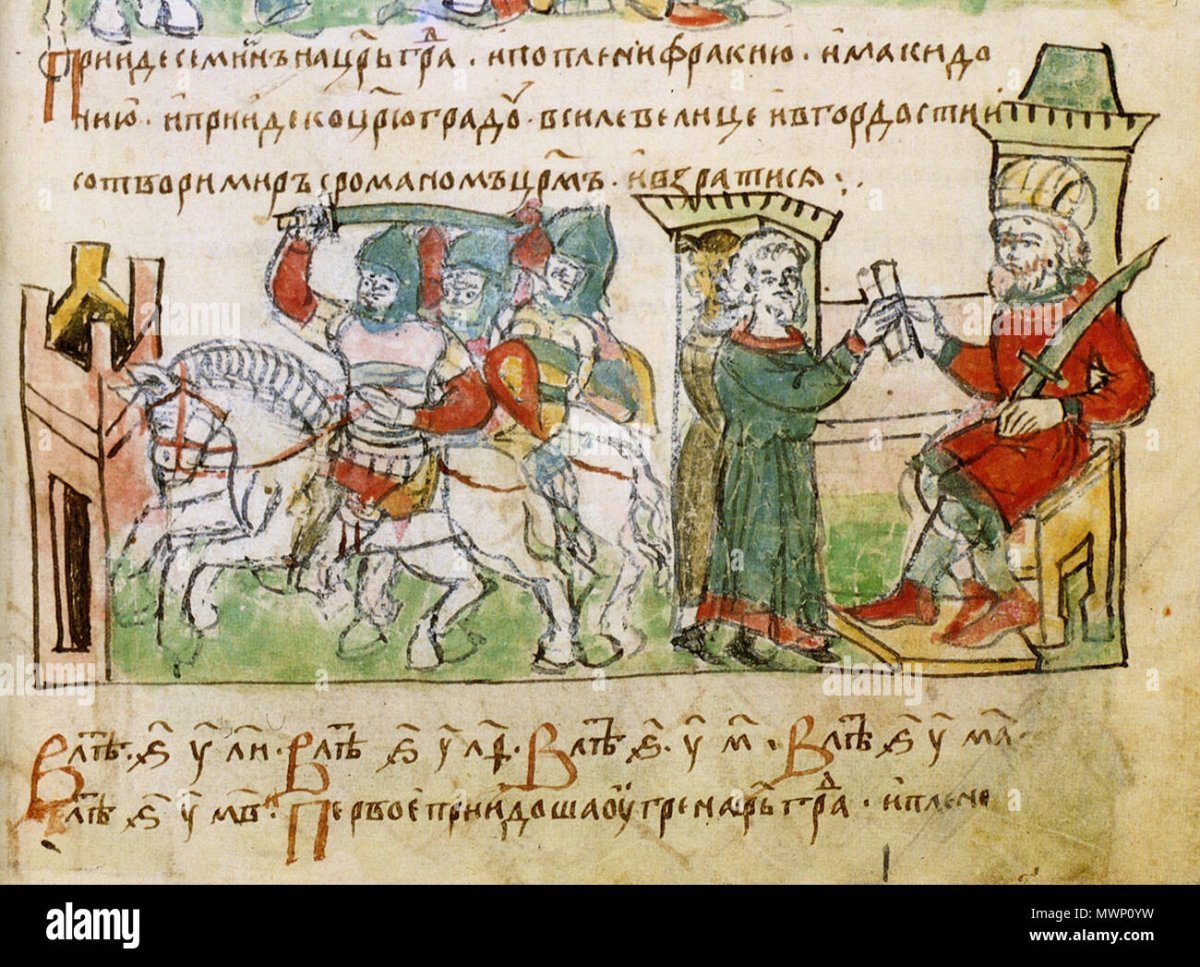 Прииде семиѡнъ на цр҃ьгра҃д · и поплени фракию · и макидо
нию · и прииде ко цр҃юградꙋ · в силе велице и в гордости и
сотвори миръ с романомъ цр҃мъ · и възратися ⁘
В лѣт҃ · ѕ҃ у҃ л҃и · В лѣт҃ ѕ҃ у҃ л҃ѳ · В лѣт҃ ѕ҃ · у҃ м҃ · В лѣт҃ ѕ҃ у҃ м҃а ·
В лѣт҃ ѕ҃ у҃ м҃в · Первое приидоша оугре на цр҃ьгра҃д · и плене
alamy
Image ID: MWP0YW
www.alamy.com